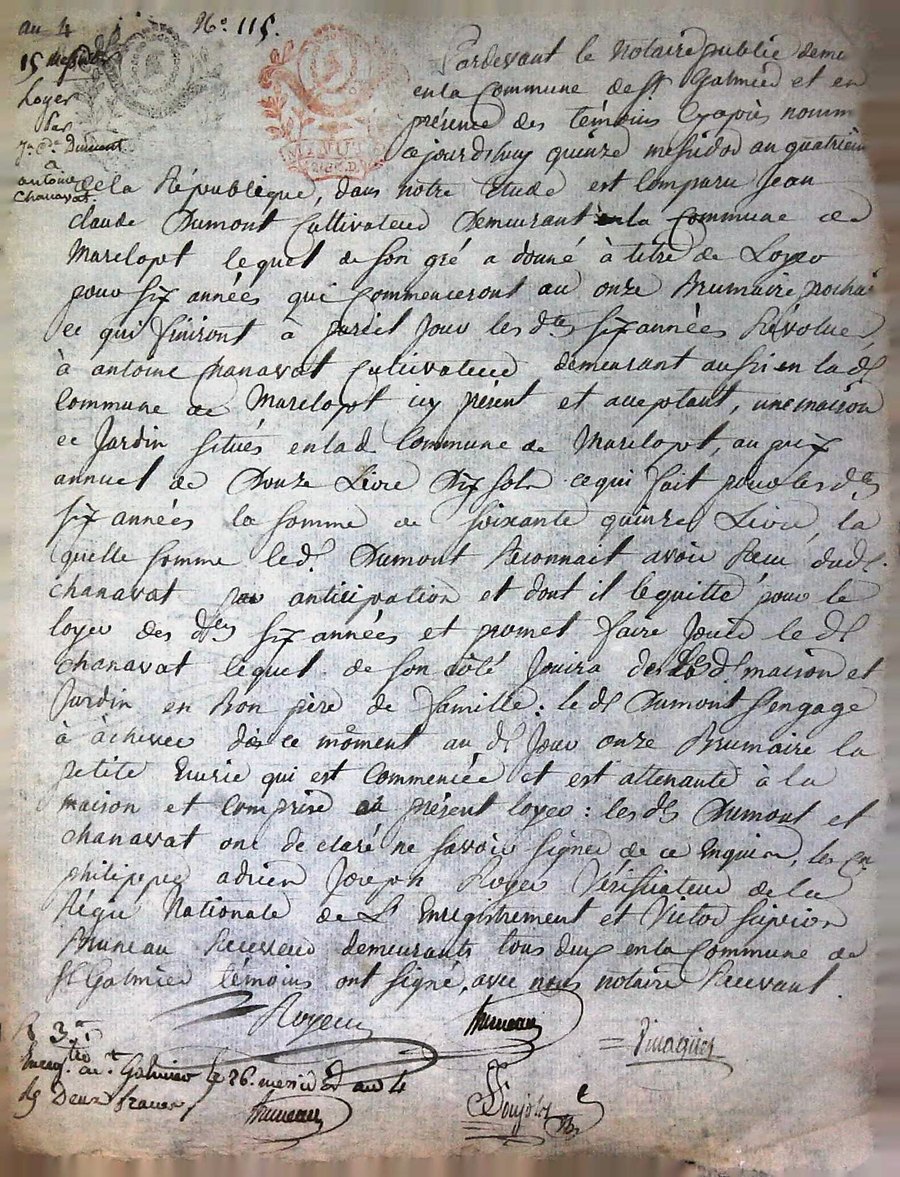 an 4
N.° 115.
15 Messidor
Loyer
Par
Jn. Cde. Dumont
a
antoine
Chanavat.
MINUTE
Pardevant le Notaire public deme
en la Commune de St Galmier et en
présence des témoins Cyaprès nomm
cejourdhuy quinze messidor an quatriem
de la République, dans notre Etude est Comparu Jean
claude Dumont Cultivateur Demeurant en la Commune de
Marclopt lequel de son gré a donné à titre de Loyer
pour six années qui Commenceront au onze Brumaire prochai
et qui finiront à pareil Jour les dtes six années Révolue
à antoine Chanavat Cultivateur demeurant aussi en lad.
Commune de Marclopt icy présent et acceptant, une maison
et Jardin situés en lad. Commune de Marclopt, au prix
annuel de Douze Livre Dix sols ce qui fait pour les des
six années la somme de soixante quinze Livre, la
quelle somme led. Dumont Reconnait avoir Recu dud.
chanavat par anticipation et dont il le quitte pour le
loyer des dtes six années et promet faire Jouir le d.
Chanavat lequel de son côté Jouira des des maison et
Jardin en Bon père de famille : le d. Dumont s'engage
à àchever dès ce môment au d. Jour onze Brumaire la
petite Ecurie qui est Commencée et est attenante à la
maison et comprise au présent loyer : les ds. Dumont et
chanavat ont declaré ne savoir signer de ce Enquis, les Cn.
philippe adrien Joseph Royer Vérifiateur de la
Régie Nationale de L'Enregistrement et Victor
Bruneau Receveur demeurants tous deux en la Commune de
St Galmier témoins ont signé, avec nous notaire Recevant.
Royer
Bruneau
R 3
Enreg.tré a St. Galmier le 26. messidor an 4
Deux francs
Bruneau